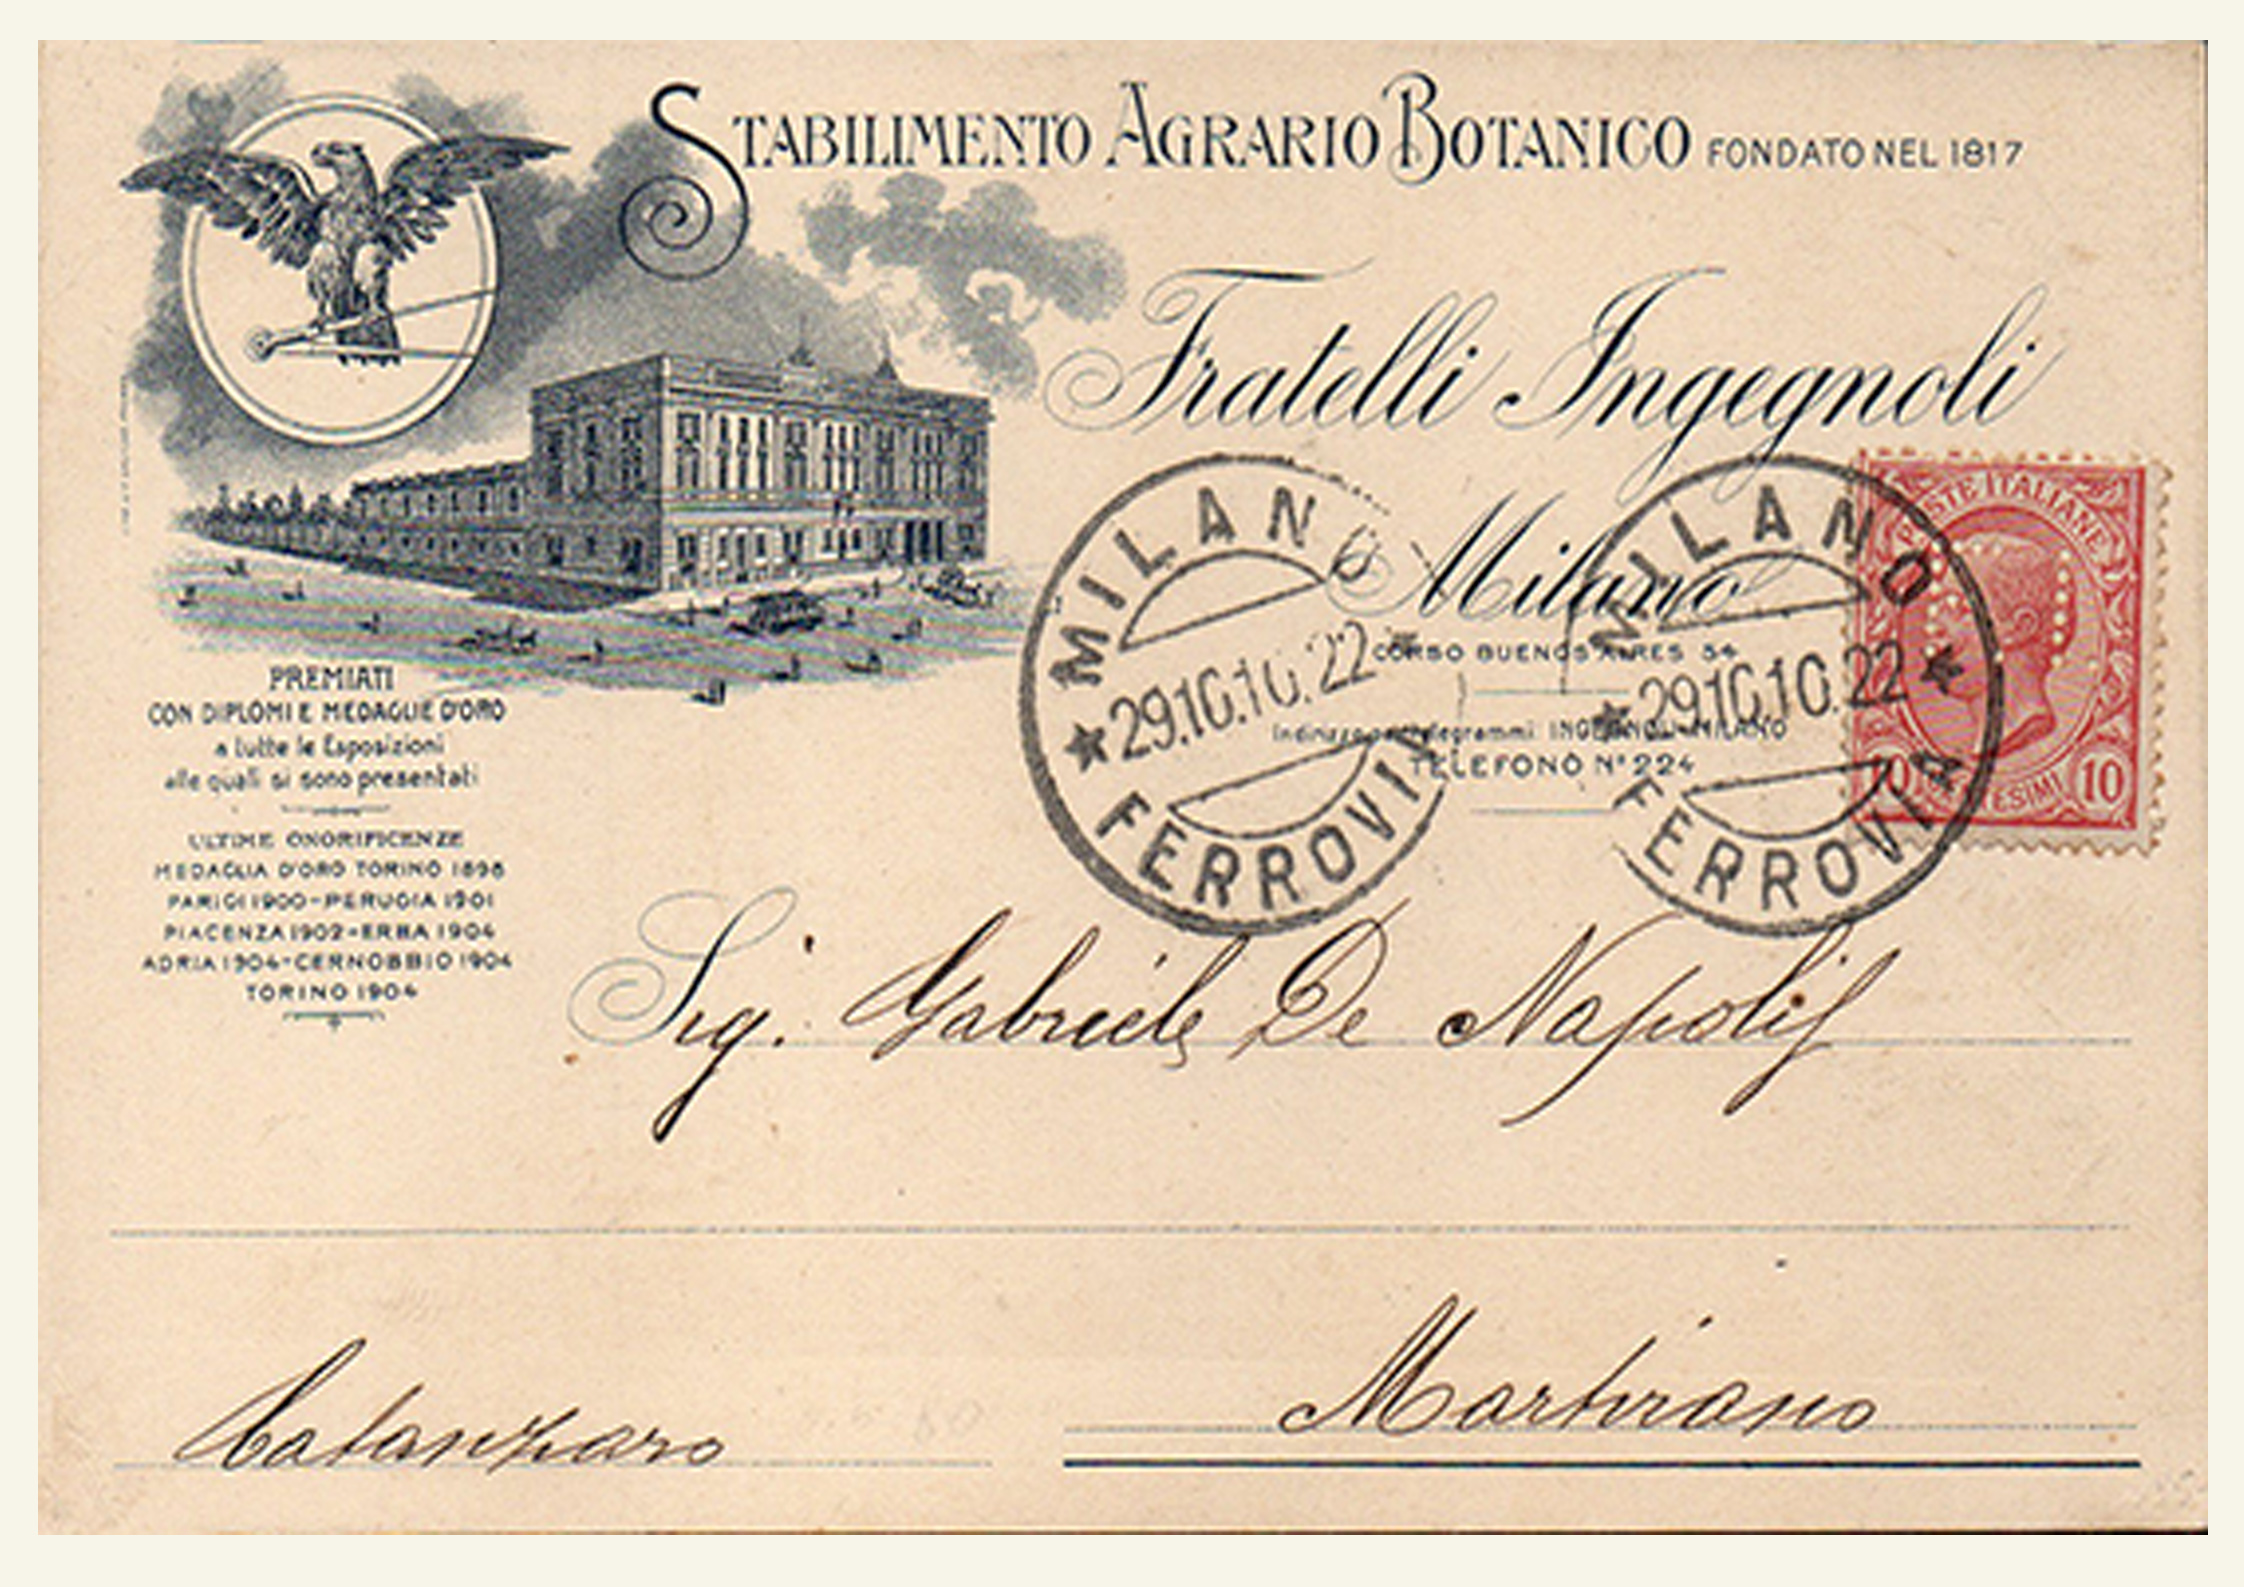 STABILIMENTO AGRARIO BOTANICO FONDATO NEL 1817
Fratelli Ingegnoli
Milano
CORSO BUENOS AIRES 54
Indirizzo per telegrammi: INGEGNOLI-MILANO
TELEFONO Nº 224
PREMIATI
CON DIPLOMI E MEDAGLIE D'ORO
a tutte le Esposizioni
alle quali si sono presentati
ULTIME ONORIFICENZE
MEDAGLIA D'ORO TORINO 1898
PARIGI 1900-PERUGIA 1901
PIACENZA 1902-ERBA 1904
ADRIA 1904-CERNOBBIO 1904
TORINO 1904
MILANO
29.10.10.22
FERROVIA
MILANO
29.10.10.22
FERROVIA
POSTE ITALIANE
10 CENTESIMI 10
Sig. Gabriele De Napoli
Martirano
Catanzaro